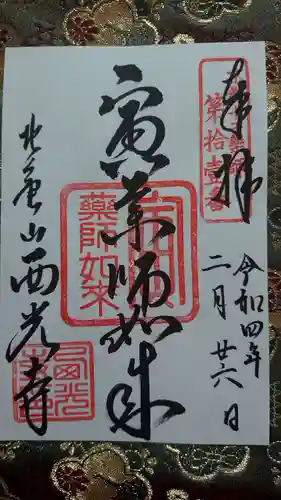 奉拝
第拾壹番
令和四年
二月廿六日
寅薬師如来
薬師如来
北亀山西光寺